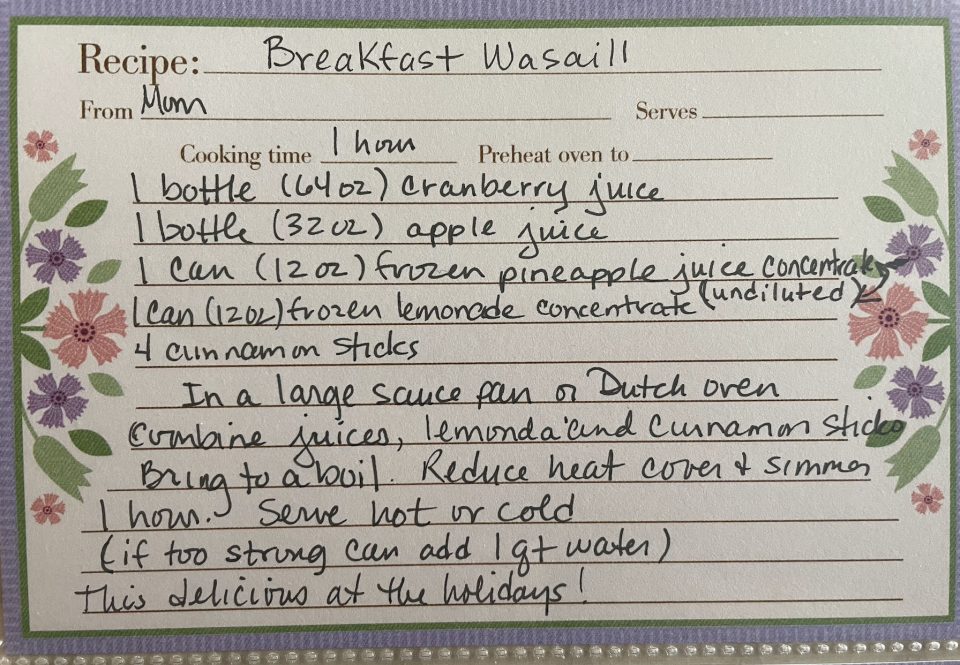 Recipe: Breakfast Wasaill
From Mom Serves
Cooking time 1 hour Preheat oven to
1 bottle (64 oz) cranberry juice
1 bottle (32 oz) apple juice
1 can (12 oz) frozen pineapple juice concentrate
1 can (12 oz) frozen lemonade concentrate (undiluted)
4 cinnamon sticks
In a large sauce pan or Dutch oven
combine juices, lemonda and cinnamon sticks
Bring to a boil. Reduce heat cover & simmer
1 hour. Serve hot or cold
(if too strong can add 1 qt water)
This delicious at the holidays!